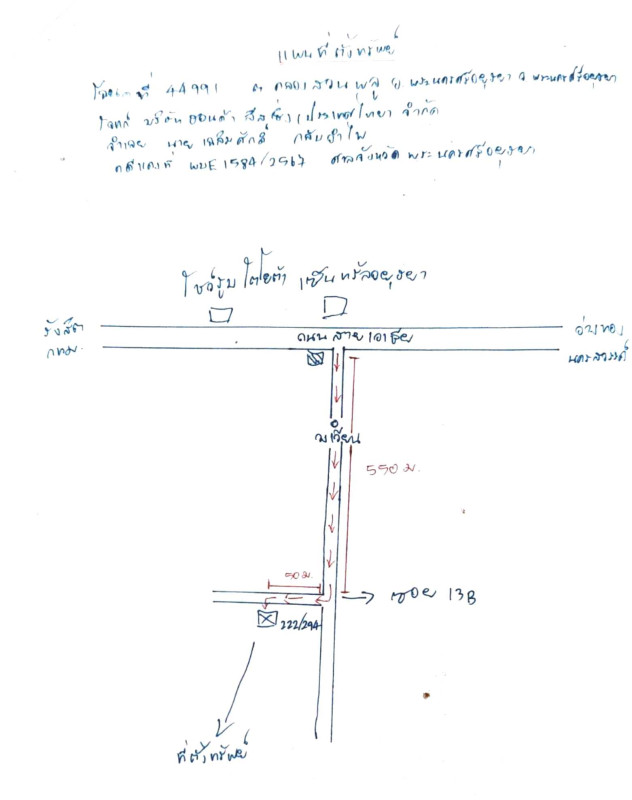 แผนที่ตั้งทรัพย์
โฉนดที่ 44991 ต คลองสวนพลู อ พระนครศรีอยุธยา จ พระนครศรีอยุธยา
โจทก์ บริษัท ฮอนด้า ลีสซิ่ง (ประเทศไทย) จำกัด
จำเลย นาย เฉลิมศักดิ์
คดีแดงที่ ผบE1584/2567 ศาลจังหวัด พระนครศรีอยุธยา
โชว์รูม โตโยต้า เซ็นทรัลอยุธยา
รังสิต
กทม.
ถนน สายเอเซีย
อ่างทอง
นครสวรรค์
ว.เวียน
550 ม.
50 ม.
ซอย 13B
222/294
ที่ตั้งทรัพย์